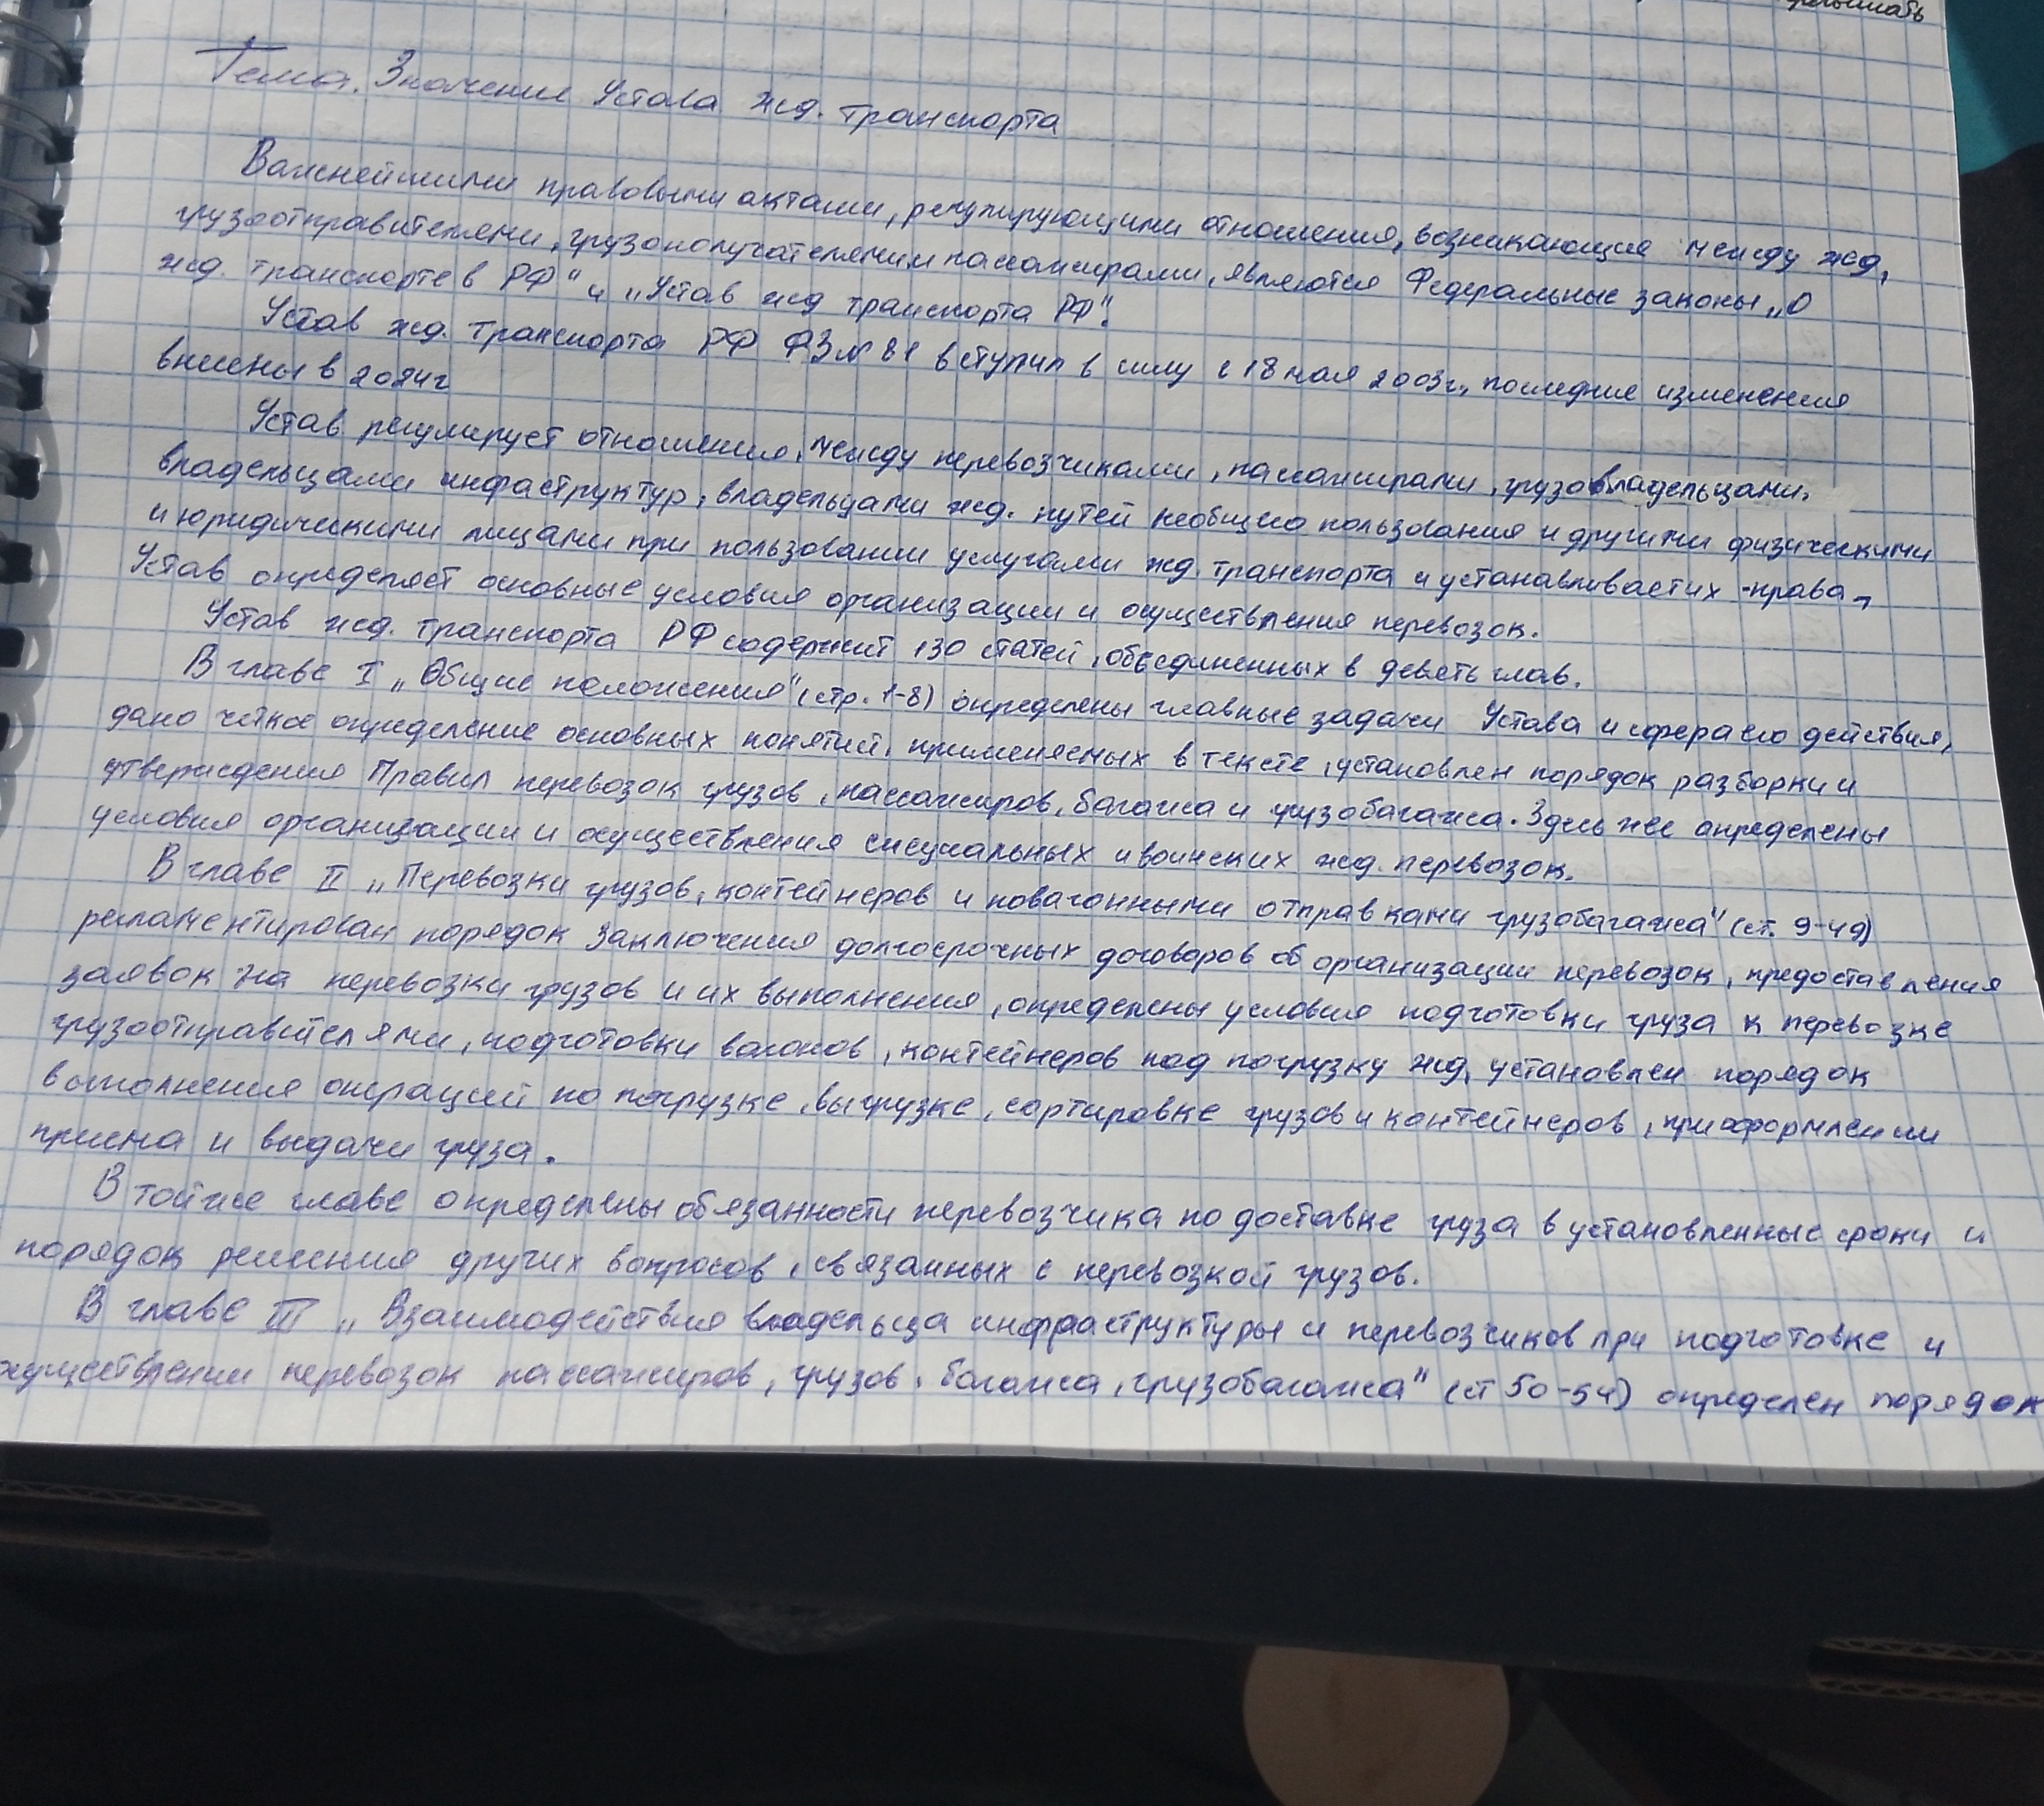 Тема. Значение Устава жд. транспорта
Важнейшими правовыми актами, регулирующими отношения, возникающие между жд,
грузоотправителями, грузополучателями и пассажирами, являются Федеральные законы „О
жд. транспорте в РФ" и „Устав жд транспорта РФ".
Устав жд. транспорта РФ ФЗ № 81 вступил в силу с 18 мая 2003г., последние изменения
внесены в 2024г
Устав регулирует отношения, между перевозчиками, пассажирами, грузовладельцами,
владельцами инфраструктур, владельцами жд. путей необщего пользования и другими физическими
и юридическими лицами при пользовании услугами жд. транспорта и устанавливает их права,
Устав определяет основные условия организации и осуществления перевозок.
Устав жд. транспорта РФ содержит 130 статей, объединенных в девять глав.
В главе I „Общие положения" (стр. 1-8) определены главные задачи Устава и сфера его действия,
дано четкое определение основных понятий, применяемых в тексте, установлен порядок разборки и
утверждения Правил перевозок грузов, пассажиров, багажа и грузобагажа. Здесь же определены
условия организации и осуществления специальных и воинских жд. перевозок.
В главе II „Перевозки грузов, контейнеров и повагонными отправками грузобагажа" (ст. 9-49)
регламентирован порядок заключения долгосрочных договоров об организации перевозок, предоставления
заявок на перевозки грузов и их выполнения, определены условия подготовки груза к перевозке
грузоотправителями, подготовки вагонов, контейнеров под погрузку жд, установлен порядок
выполнения операций по погрузке, выгрузке, сортировке грузов и контейнеров, при оформлении
приема и выдачи груза.
В той же главе определены обязанности перевозчика по доставке груза в установленные сроки и
порядок решения других вопросов, связанных с перевозкой грузов.
В главе III „Взаимодействия владельца инфраструктуры и перевозчиков при подготовке и
осуществлении перевозок пассажиров, грузов, багажа, грузобагажа" (ст 50-54) определен порядок